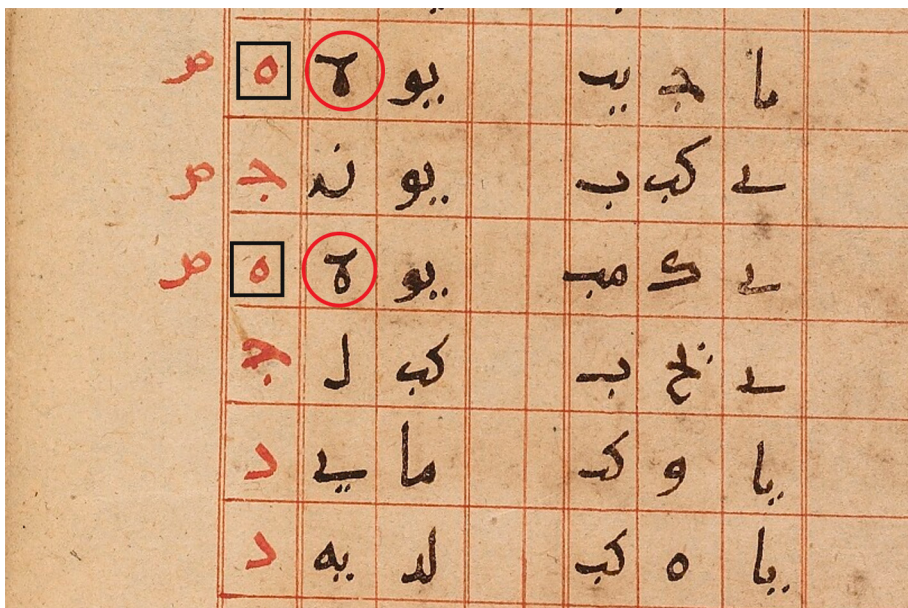 ما ج يب يو ه
ى كب ب يو ند ج
ى ك مب يو ه
ى ب كب ل ج
يا و كد ما يے د
يا ه كب لد يه د